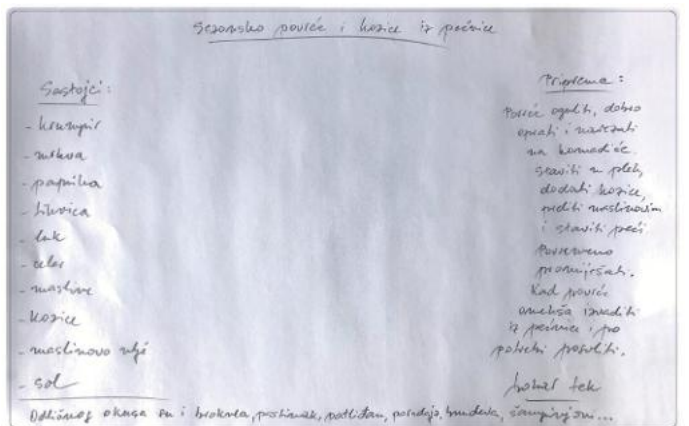 Sezonsko povrće i kozice iz pećnice
Sastojci:
- krumpir
- mrkva
- paprika
- tikvica
- luk
- celer
- masline
- kozice
- maslinovo ulje
- sol
Priprema:
Povrće oguliti, dobro
oprati i narezati
na komadiće.
staviti u pleh,
dodati kozice,
maslinovim
i staviti peći
Povremeno
promiješati.
Kad povrće
omekša izvaditi
iz pećnice i po
potrebi posoliti.
Dobar tek
Odličnog okusa su i brokula, pastirnak, patliđan, bundeva, šampinjoni...